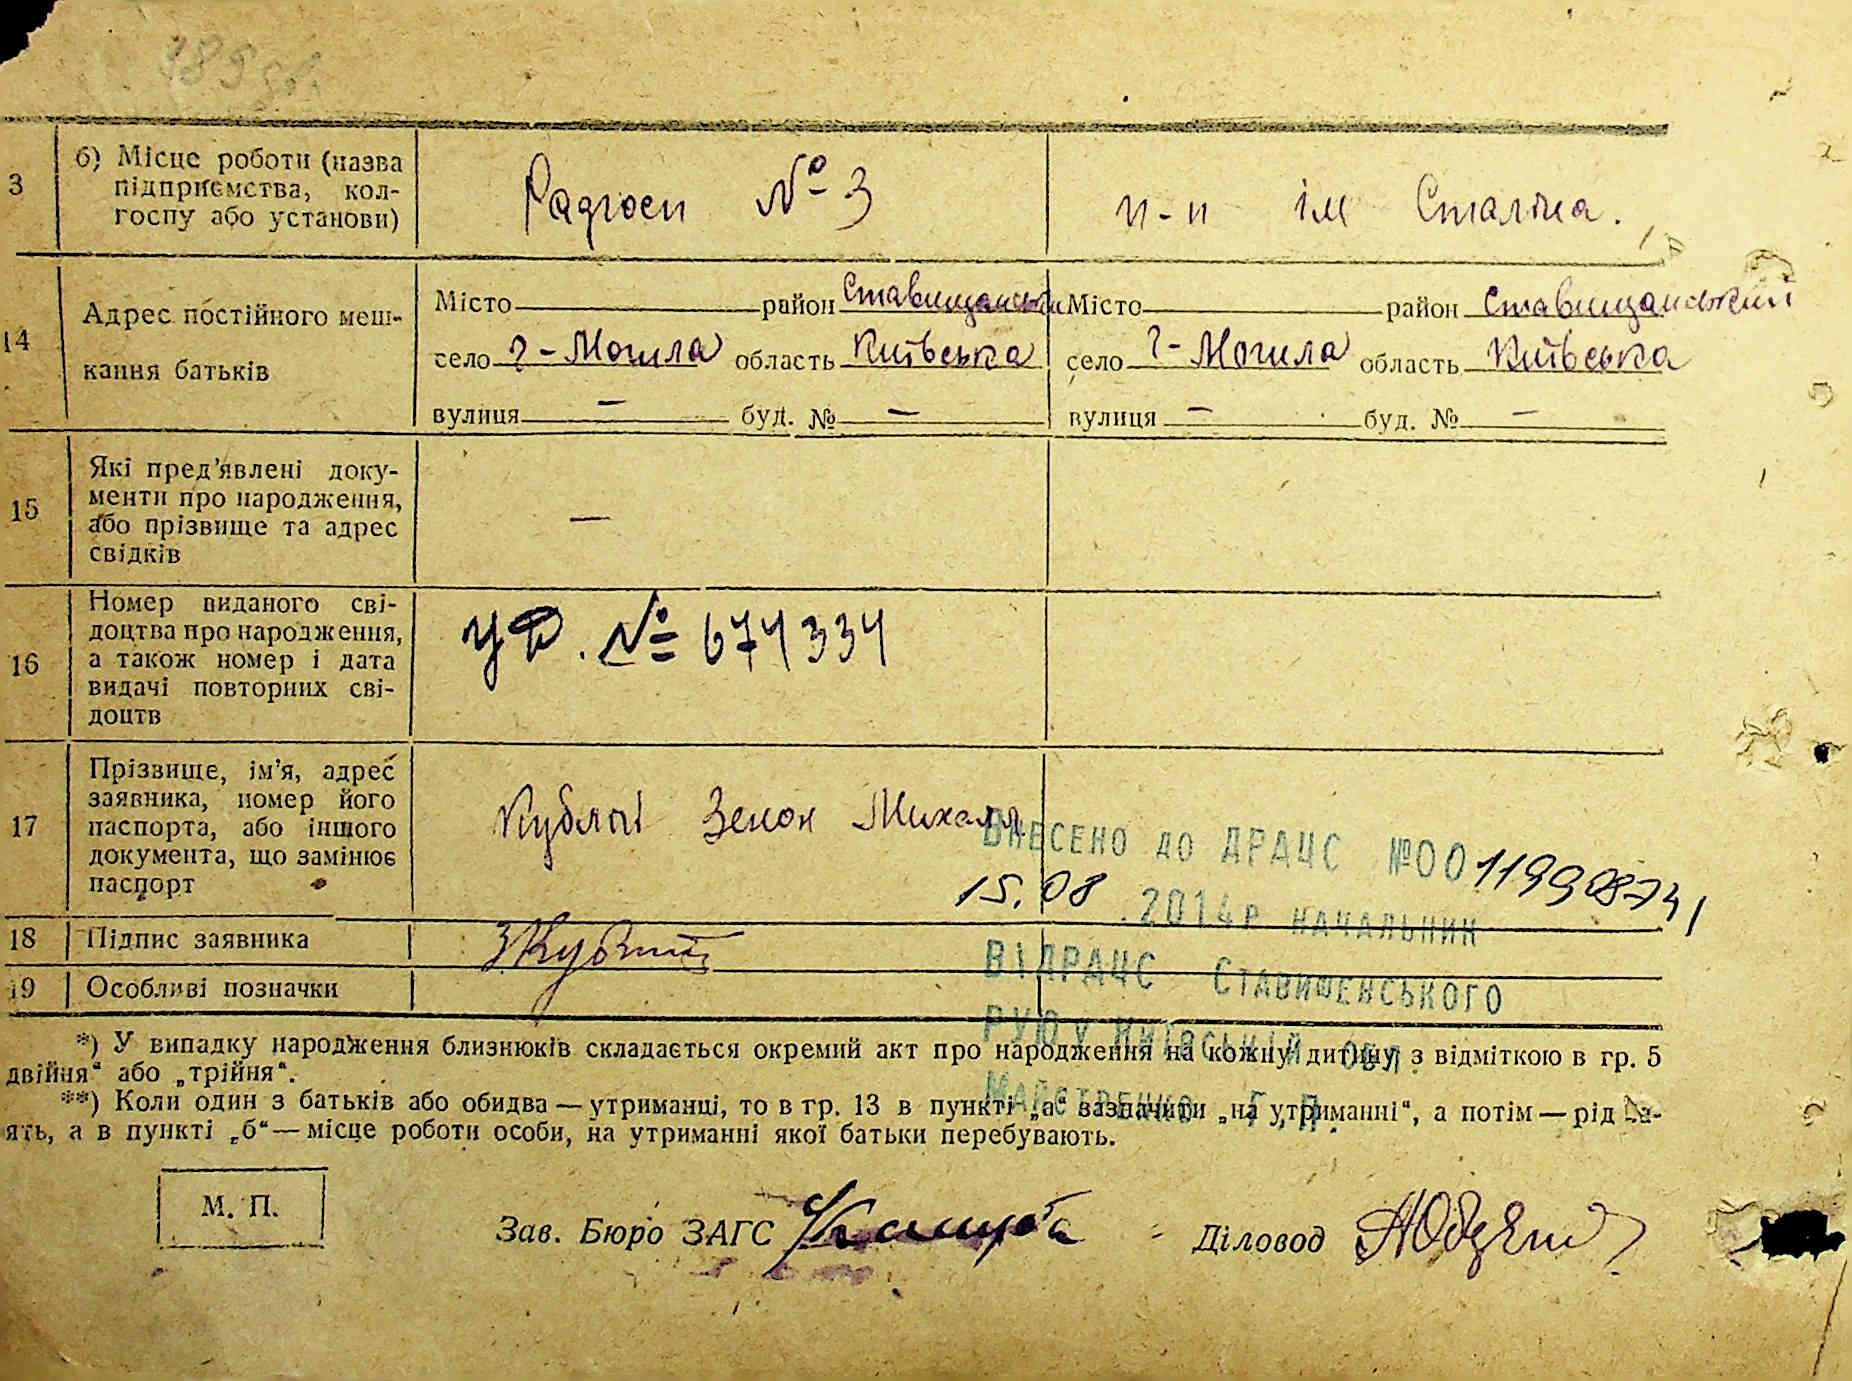 3 б) Місце роботи (назва
підприємства, кол-
госпу або установи)
Радгосп № 3
п-п ім Сталіна.
14 Адрес постійного меш-
кання батьків
Місто район Ставищанський
село Г-Могила область Київська
вулиця — буд. № —
Місто район Ставищанський
село Г-Могила область Київська
вулиця — буд. № —
15 Які пред’явлені доку-
менти про народження,
або прізвище та адрес
свідків
—
16 Номер виданого сві-
доцтва про народження,
а також номер і дата
видачі повторних сві-
доцтв
УФ. № 674334
17 Прізвище, ім’я, адрес
заявника, номер його
паспорта, або іншого
документа, що замінює
паспорт
Зенон Михайл
ВНЕСЕНО ДО ДРАЦС №00119998741
15.08.2014р НАЧАЛЬНИК
ВІДРАЦС СТАВИЩЕНСЬКОГО
РУЮ У КИЇВСЬКІЙ ОБЛ
МАЙСТРЕНКО Г.П.
18 Підпис заявника
19 Особливі позначки
*) У випадку народження близнюків складається окремий акт про народження на кожну дитину з відміткою в гр. 5
двійня“ або „трійня“.
**) Коли один з батьків або обидва — утриманці, то в гр. 13 в пункті „а“ зазначити „на утриманні“, а потім — рід за-
ять, а в пункті „б“ — місце роботи особи, на утриманні якої батьки перебувають.
М. П.
Зав. Бюро ЗАГС
Діловод